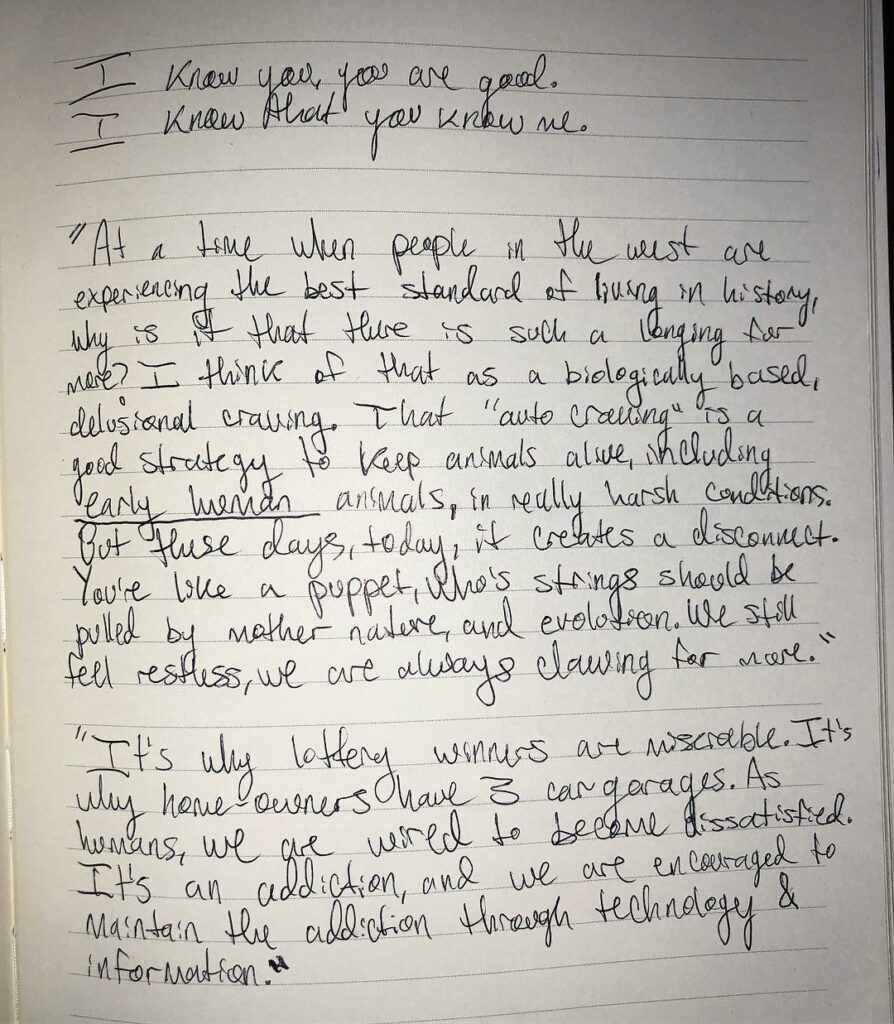 I know you, you are good.
I know that you know me.
"At a time when people in the west are
experiencing the best standard of living in history,
why is it that there is such a longing for
more? I think of that as a biologically based,
delusional craving. That "auto craving" is a
good strategy to keep animals alive, including
early human animals, in really harsh conditions.
But these days, today, it creates a disconnect.
You're like a puppet, who's strings should be
pulled by mother nature, and evolution. We still
feel restless, we are always clawing for more."
"It's why lottery winners are miserable. It's
why home-owners have 3 car garages. As
humans, we are wired to become dissatisfied.
It's an addiction, and we are encouraged to
maintain the addiction through technology &
information."